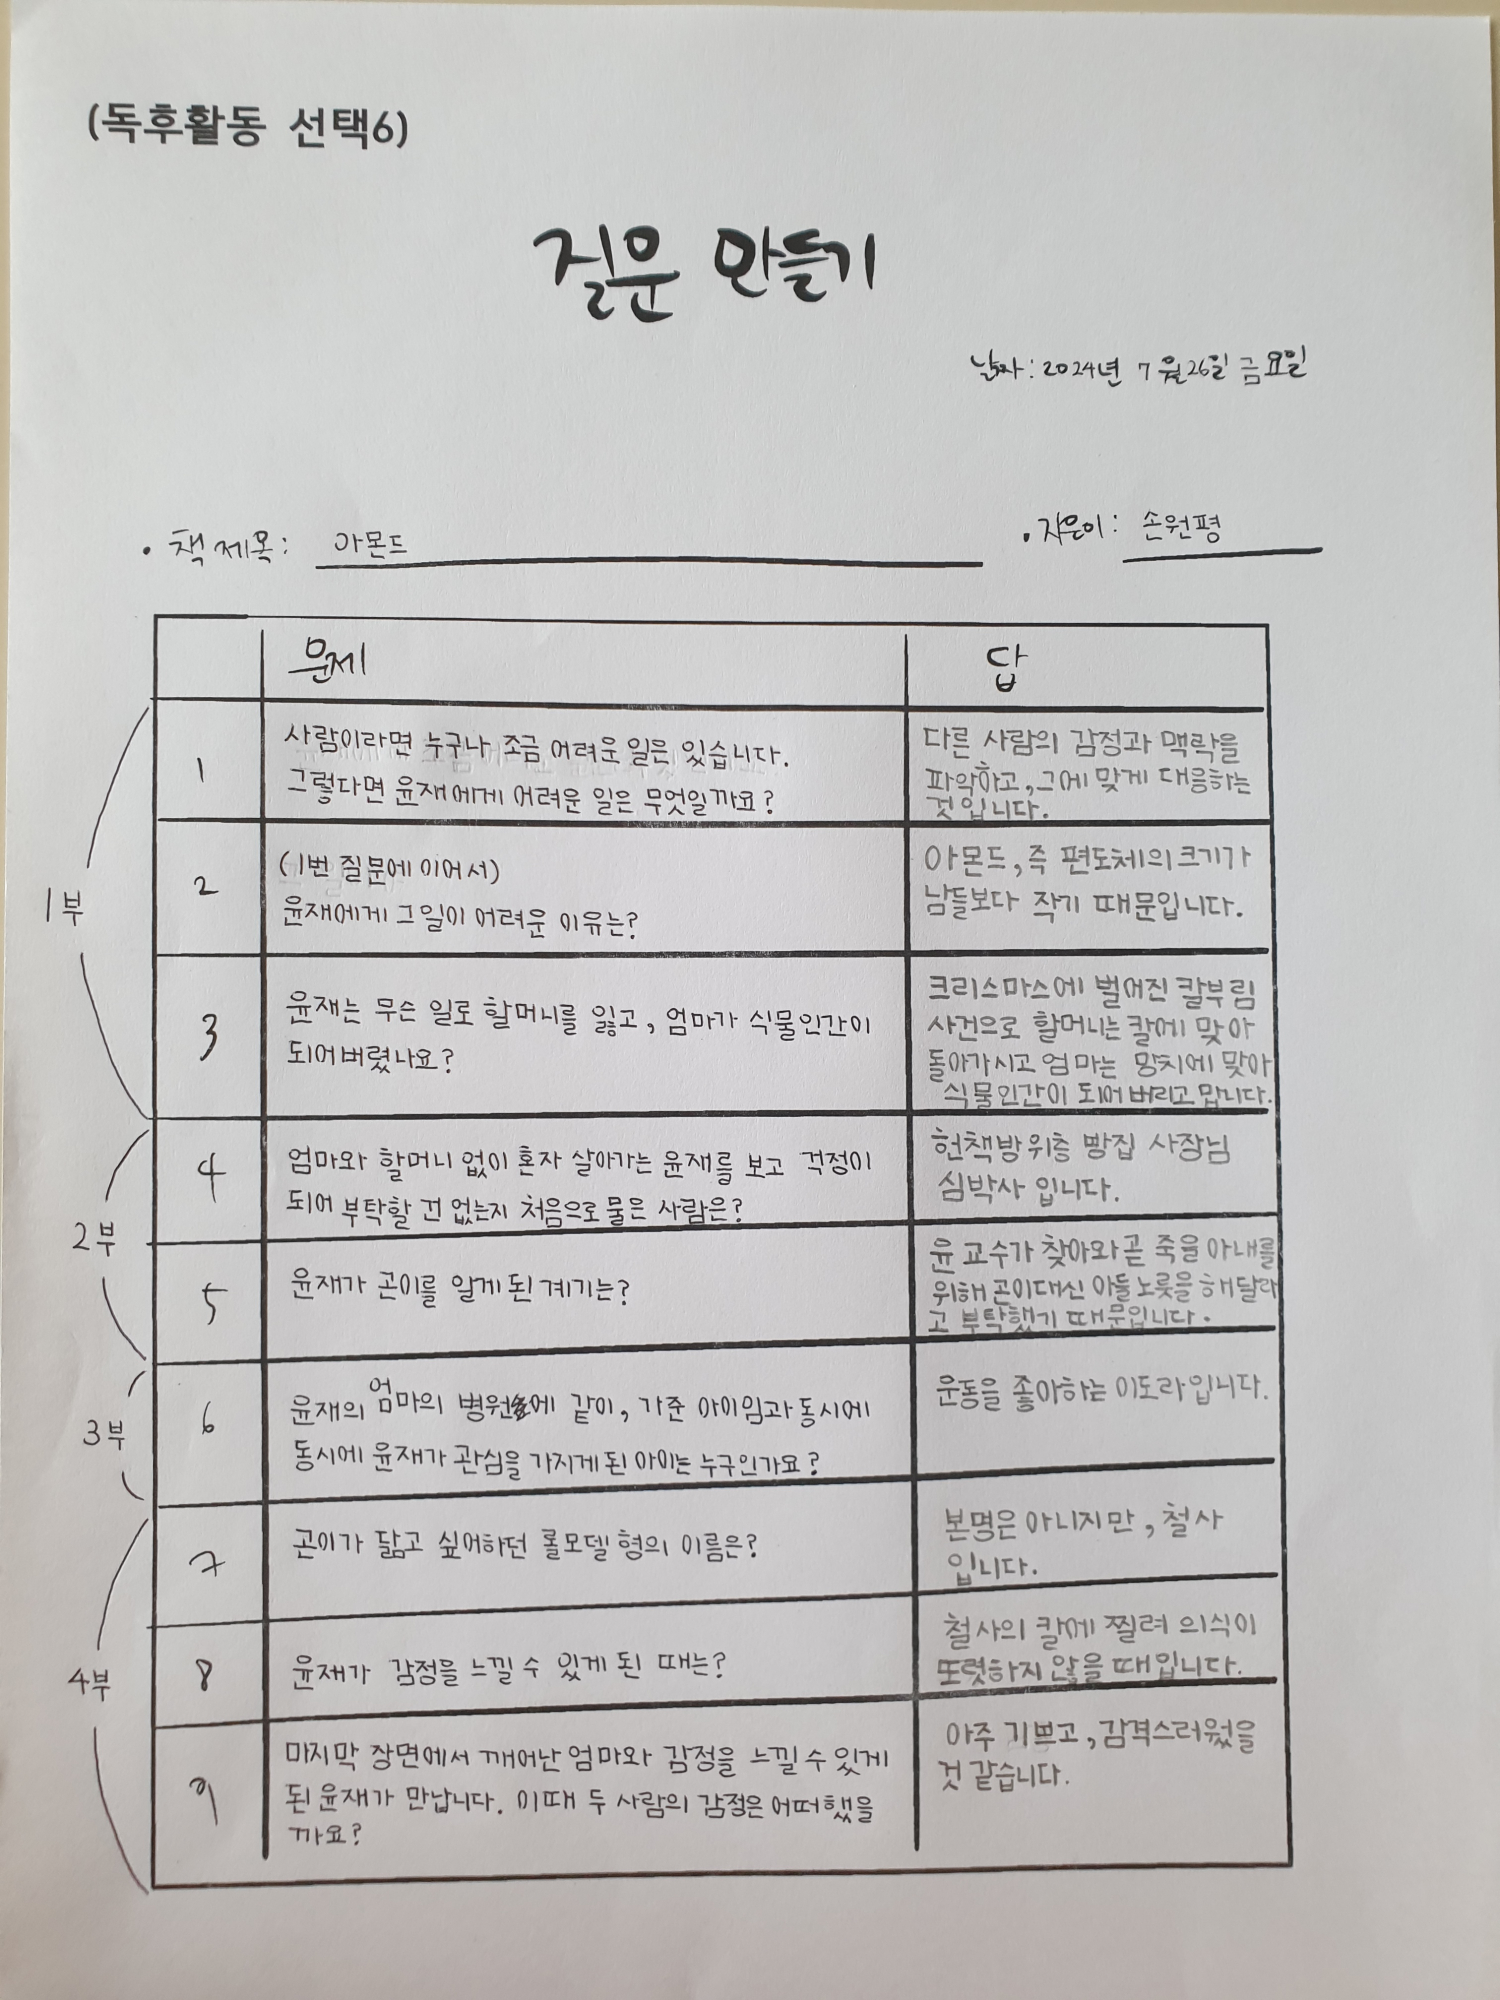 (독후활동 선택6)
질문 만들기
날짜: 2024년 7월 26일 금요일
• 책 제목: 아몬드
• 지은이: 손원평
문제
답
1부
1
사람이라면 누구나 조금 어려운 일은 있습니다.
그렇다면 윤재에게 어려운 일은 무엇일까요?
다른 사람의 감정과 맥락을
파악하고, 그에 맞게 대응하는
것입니다.
2
(1번 질문에 이어서)
윤재에게 그일이 어려운 이유는?
아몬드, 즉 편도체의 크기가
남들보다 작기 때문입니다.
3
윤재는 무슨 일로 할머니를 잃고, 엄마가 식물인간이
되어버렸나요?
크리스마스에 벌어진 칼부림
사건으로 할머니는 칼에 맞아
돌아가시고 엄마는 망치에 맞아
식물인간이 되어버리고 맙니다.
2부
4
엄마와 할머니 없이 혼자 살아가는 윤재를 보고 걱정이
되어 부탁할 건 없는지 처음으로 물은 사람은?
헌책방 위층 빵집 사장님
심박사 입니다.
5
윤재가 곤이를 알게 된 계기는?
윤 교수가 찾아와 곧 죽을 아내를
위해 곤이대신 아들노릇을 해달라
고 부탁했기 때문입니다.
3부
6
윤재의 엄마의 병원에 같이, 가준 아이임과 동시에
동시에 윤재가 관심을 가지게 된 아이는 누구인가요?
운동을 좋아하는 이도라입니다.
4부
7
곤이가 닮고 싶어하던 롤모델 형의 이름은?
본명은 아니지만, 철사
입니다.
8
윤재가 감정을 느낄 수 있게 된 때는?
철사의 칼에 찔려 의식이
또렷하지 않을 때입니다.
9
마지막 장면에서 깨어난 엄마와 감정을 느낄 수 있게
된 윤재가 만납니다. 이때 두 사람의 감정은 어떠했을
까요?
아주 기쁘고, 감격스러웠을
것 같습니다.